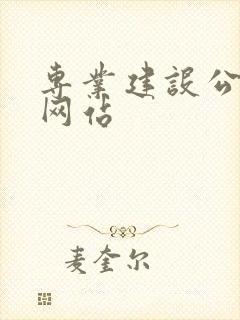 専業建設公
网站
麦奎尔